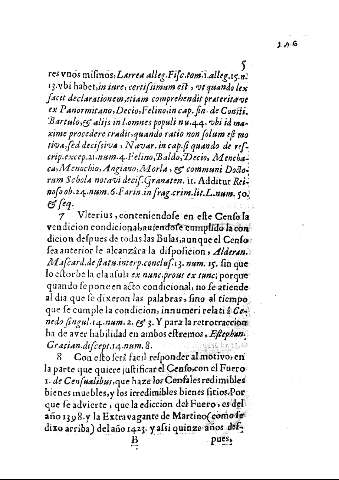 5
res vnos mismos: Larrea alleg. Fisc. tom. 1. alleg. 15. n.
13. vbi habet, in iure, certissimum est, vt quando lex
facit declarationem, etiam comprehendit præterita ve
ex Panormitano, Decio, Felino, in cap. fin. de Consti.
Bartulo, & alijs in l. omnes populi nu. 44. vbi id ma-
xime procedere tradit, quando ratio non solum est mo
tiva, sed decissiva, Navar. in cap. si quando de ref-
crip. excep. 21. num. 4. Felino, Baldo, Decio, Mencha-
ca, Menochio, Angiano, Morla, & communi Docto-
rum Schola notavi decis. Granaten. 11. Additur Rei-
noso ob. 24. num. 6. Farin in frag. crim. lit. L. num. 50.
& seq.
7 Vlterius, conteniendose en este Censo la
vendicion condicional, auiendose cumplido la con
dicion despues de todas las Bulas, aunque el Censo
sea anterior le alcanzára la disposicion, Alderan.
Mascard. de statu. interp. conclus. 13. num. 15. sin que
lo estorbe la clausula ex nunc, prout ex tunc; porque
quando se pone en acto condicional, no se atiende
al dia que se dixeron las palabras, sino al tiempo
que se cumple la condicion, innumeri relati à Ce-
nedo singul. 14. num. 2. & 3. Y para la retrotraccion
ha de aver habilidad en ambos estremos, Estephan.
Gratian. discept. 14. num. 8.
8 Con esto será facil responder al motivo, en
la parte que quiere justificar el Censo, con el Fuero
1. de Censualibus, que haze los Censales redimibles
bienes muebles, y los irredimibles bienes sitios. Por
que se advierte, que la ediccion del Fuero, es del
año 1398. y la Extravagante de Martino (como se
dixo arriba) del año 1423. y assi quinze años des-
B pues,